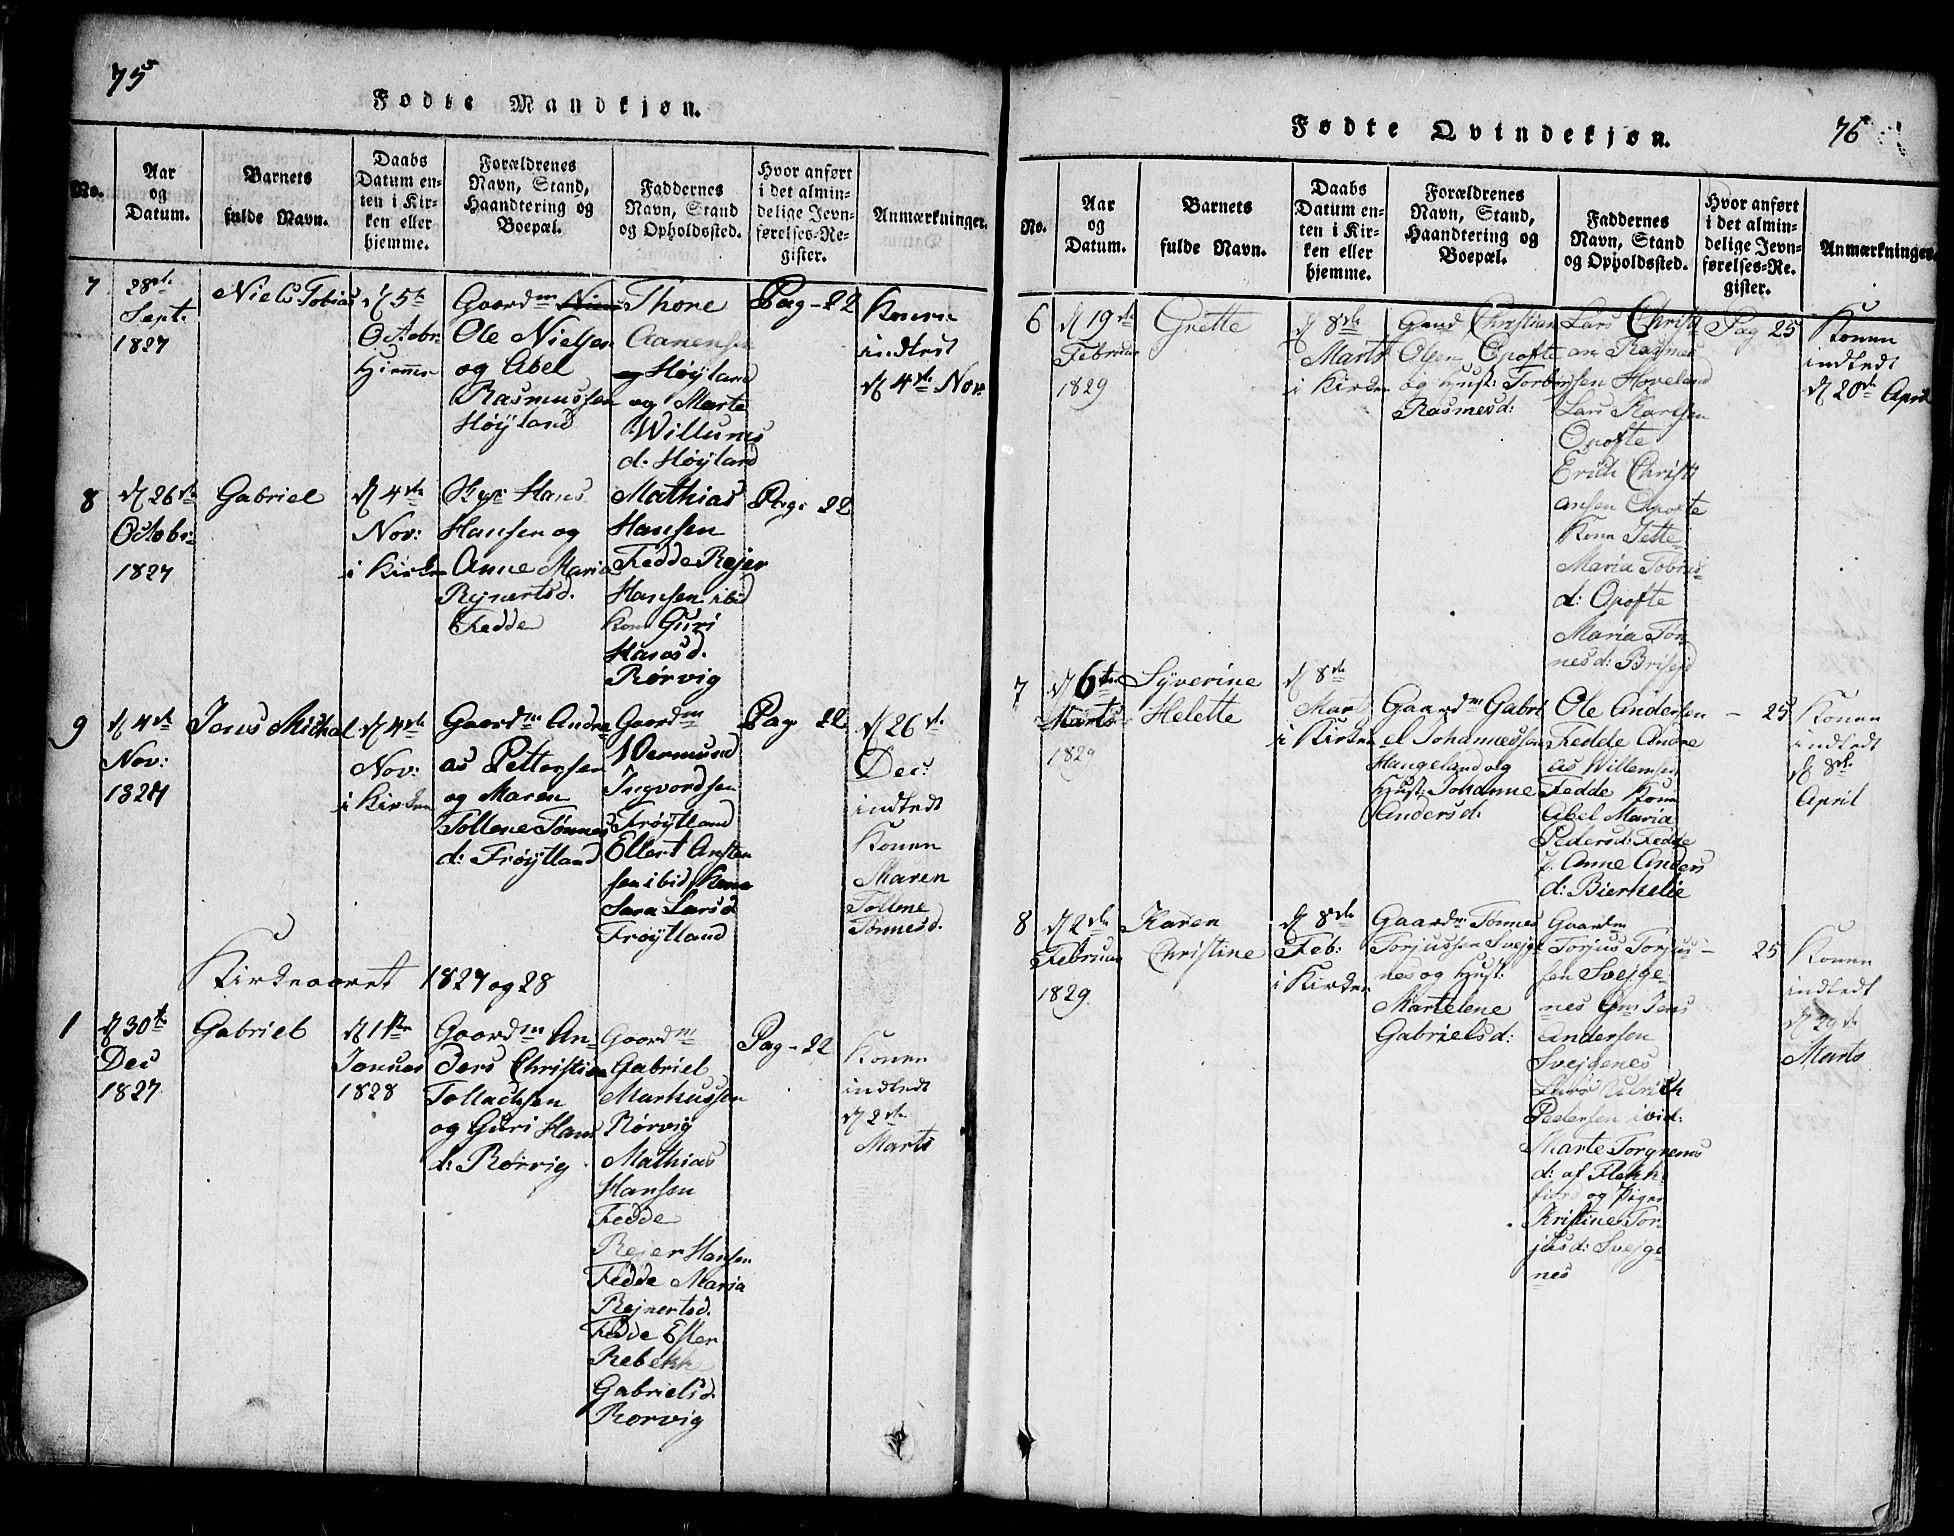 75
Fødte Mandkjøn.
No.
Aar
og
Datum.
Barnets
fulde Navn.
Daabs
Datum en-
ten i Kir-
ken eller
hjemme.
Forældrenes
Navn, Stand,
Haandtering og
Boepæl.
Faddernes
Navn, Stand
og Opholdssted.
Hvor anført
i det almin-
delige Jevn-
førelses-Re-
gister.
Anmærkninger.
7
28de
Sept.
1827
Niels Tobias
d 5te
Octobr
Hiemme
Gaardm
Ole Nielsen
og Abel
Rasmussen
Høyland
Thore
Aanensen
Høyland
og Marte
Willums
d: Høyland
Pag - 22
Konen
indtedt
d 4de Nov.
8
d 26de
Octobr:
1827
Gabriel
d 4de
Nov:
i Kirken
Hans
Hansen og
Anne Maria
Rejnertsd.
Fedde
Mathias
Hansen
Fedde Rejer
Hansen ibid
Kone Guri
Hansd.
Rørvig
Pag: 22
9
d 4de
Nov:
1827
Jens Michal
d 4de
Nov:
i Kirken
Gaardm Andre
as Pettersen
og Maren
Tollene Tønnes
d: Frøytland
Gaardm
Wermund
Ingvordsen
Frøytland
Ellert Ansten
sen ibid Kone
Sara Larsd
Frøytland
Pag 22
d 26de
Dec:
indtedt
Konen
Maren
Tollene
Tønnesd.
Kirkeaaret 1827 og 28
1
d 30te
Dec
1827
Gabriel
d 1ste
Januar
1828
Gaardm An-
ders Christian
Tollachsen
og Guri Hans
d: Rørvig
Gaardm
Gabriel
Markussen
Rørvig
Mathias
Hansen
Fedde
Rejer Hansen
Fedde Maria
Rejnertsd.
Fedde Ester
Rebekk
Gabrielsd.
Rørvig
Pag - 22
Konen
indtedt
d 2de
Marts
Fødte Qvindekjøn.
76
No.
Aar
og
Datum.
Barnets
fulde Navn.
Daabs
Datum en-
ten i Kir-
ken eller
hjemme.
Forældrenes
Navn, Stand,
Haandtering og
Boepæl.
Faddernes
Navn, Stand
og Opholdssted.
Hvor anført
i det almin-
delige Jevn-
førelses-Re-
gister.
Anmærkninger.
6
d 19de
Februar
1829
Grette
d 8de
Marts
i Kirken
Christian
Olsen Opofte
og Hust: Torbor
Rasmesd:
Lars Christi
an Rasmus
sen Hoveland
Lars Larsen
Opofte
Erich Christi
ansen Opofte
Kone Jette
Maria Tobias
d: Opofte
Maria Tøn
nesd:
Pag 25
Konen
indtedt
d 20de April
7
d 6te
Marts
1829
Syverine
Helette
d 8de
Marts
i Kirken
Gaardm Gabri
el Johannessen
Haugeland og
Hust: Johanne
Andersd:
Ole Andersen
Fedde Andre
as Willemsen
Fedde Kone
Abel Maria
Pedersd: Fedde
P. Anne Anders
d: Bierkelie
- 25
Konen
indtedt
d 8de
April
8
d 2de
Februar
1829
Karen
Christine
d 8de
Feb:
i Kirken
Gaardm Tønnes
Torjussen Svejge
nes og Hust:
Martelene
Gabrielsd:
Gaardm
Torjus Torjus
sen Svejge
nes Gm Jens
Andersen
Svejgenes
Lars Ulrich
Pedersen ibid:
Marte Torgrems
d: af Flekke
fiord og Pigen
Kristine Tor
jusd: Svejge
nes
- 25
Konen
indtedt
d 29de
Marts